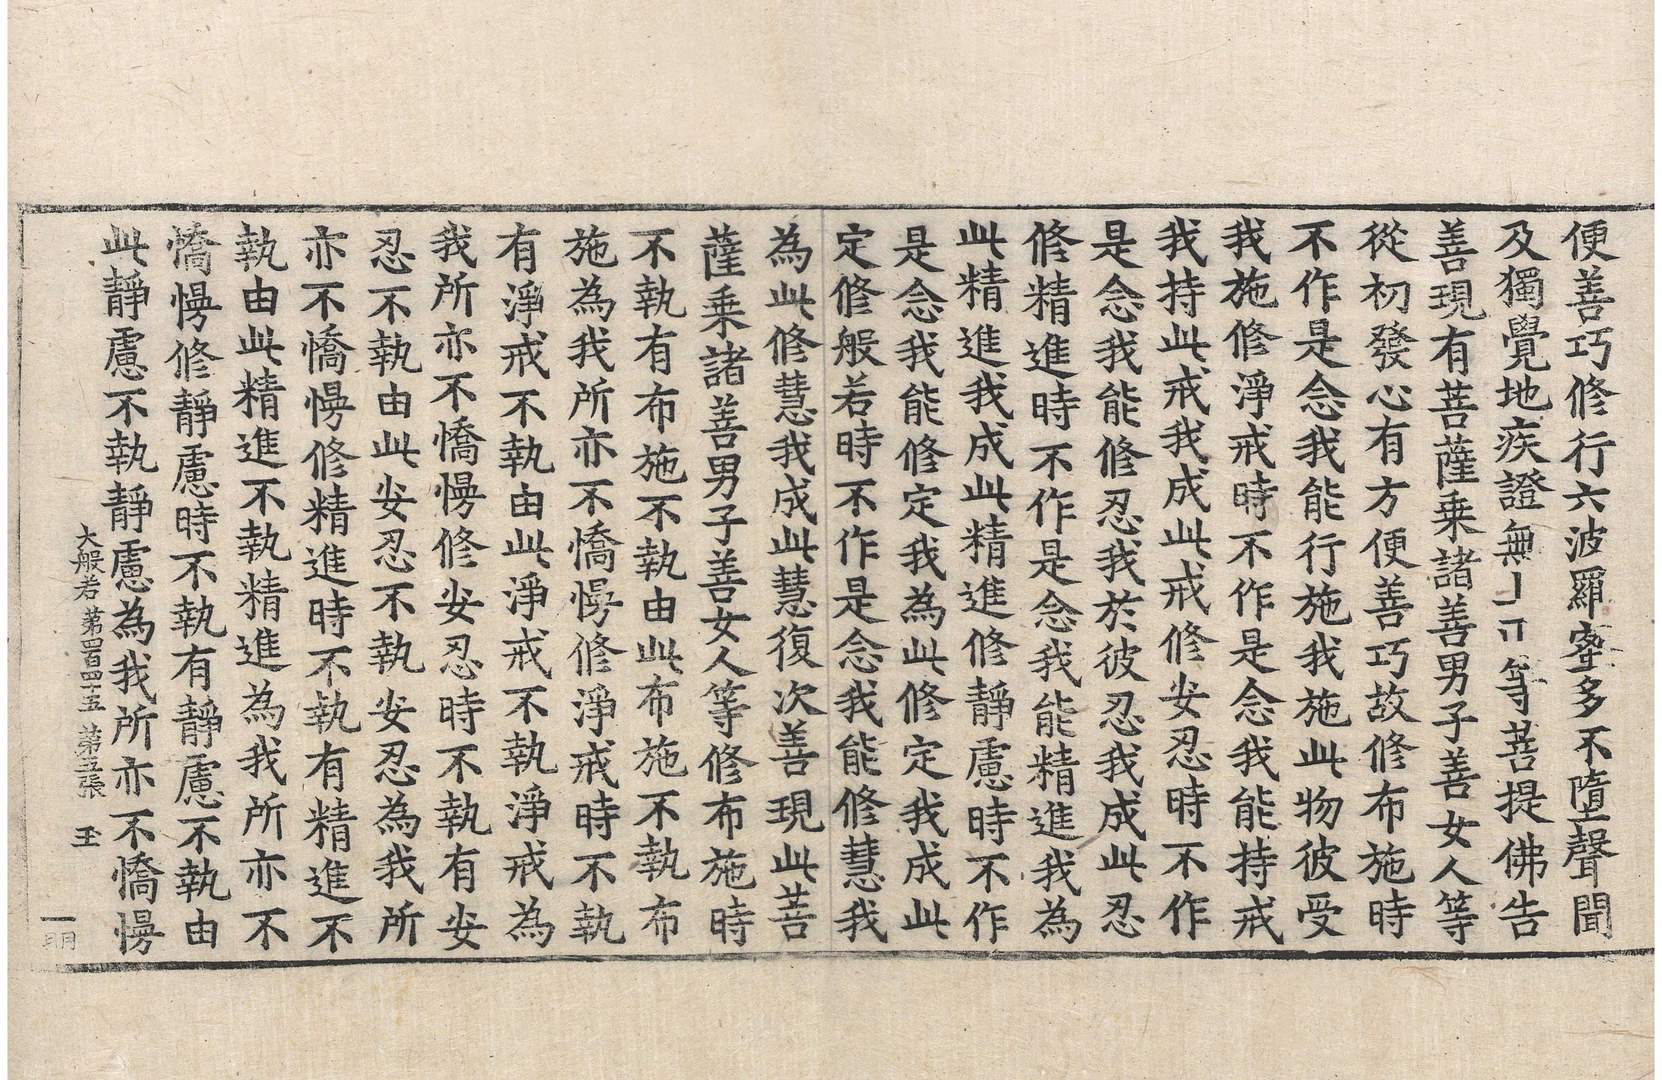 便善巧修行六波羅蜜多不墮聲聞
及獨覺地疾證無等菩提佛告
善現有菩薩乘諸善男子善女人等
從初發心有方便善巧故修布施時
不作是念我能行施我施此物彼受
我施修淨戒時不作是念我能持戒
我持此戒我成此戒修安忍時不作
是念我能修忍我於彼忍我成此忍
修精進時不作是念我能精進我為
此精進我成此精進修靜慮時不作
是念我能修定我為此修定我成此
定修般若時不作是念我能修慧我
為此修慧我成此慧復次善現此菩
薩乘諸善男子善女人等修布施時
不執有布施不執由此布施不執布
施為我所亦不憍慢修淨戒時不執
有淨戒不執由此淨戒不執淨戒為
我所亦不憍慢修安忍時不執有安
忍不執由此安忍不執安忍為我所
亦不憍慢修精進時不執有精進不
執由此精進不執精進為我所亦不
憍慢修靜慮時不執有靜慮不執由
此靜慮不執靜慮為我所亦不憍慢
大般若第四百四十五 第五張 玉